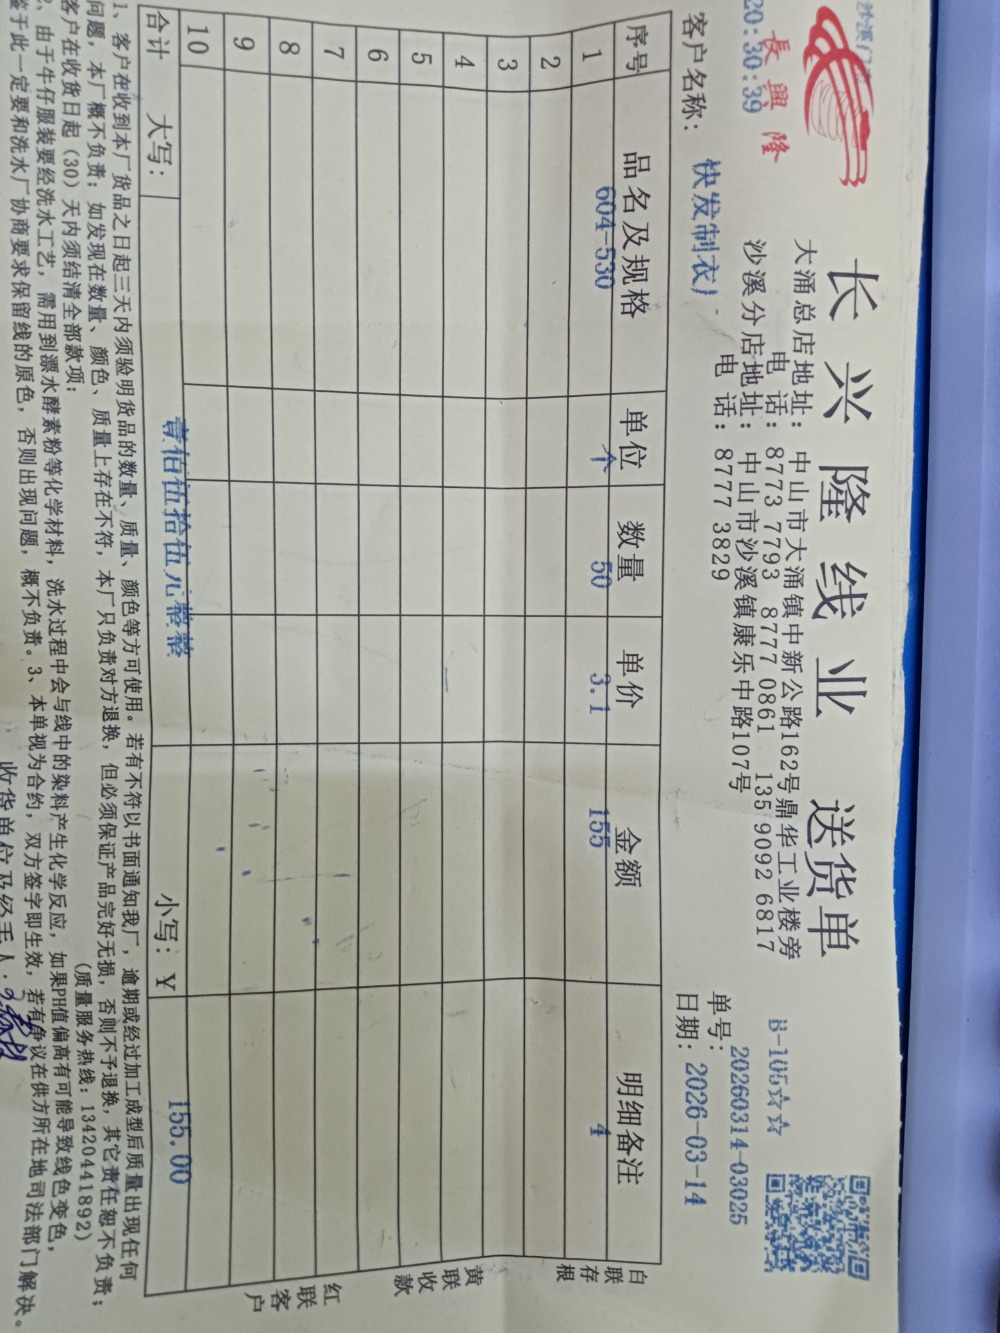 沙溪门
20:30:39
長興隆
长兴隆线业 送货单
大涌总店地址: 中山市大涌镇中新公路162号鼎华工业楼旁
电 话: 8773 7793 8777 0861 135 9092 6817
沙溪分店地址: 中山市沙溪镇康乐中路107号
电 话: 8777 3829
B-105☆☆
单号: 20260314-03025
日期: 2026-03-14
客户名称: 快发制衣厂
序号 品名及规格 单位 数量 单价 金额 明细备注
1 604-530 个 50 3.1 155 4
2
3
4
5
6
7
8
9
10
合计 大写: 壹佰伍拾伍元整整 小写: ¥ 155.00
白联存根
黄联收款
红联客户
1、客户在收到本厂货品之日起三天内须验明货品的数量、质量、颜色等方可使用。若有不符以书面通知我厂,逾期或经过加工成型后质量出现任何
问题,本厂概不负责;如发现在数量、颜色、质量上存在不符,本厂只负责对方退换,但必须保证产品完好无损,否则不予退换,其它责任恕不负责;
客户在收货日起(30)天内须结清全部款项; (质量服务热线:13420441892)
2、由于牛仔服装要经洗水工艺,需用到漂水酵素粉等化学材料,洗水过程中会与线中的染料产生化学反应,如果PH值偏高有可能导致线色变色,
鉴于此一定要和洗水厂协商要求保留线的原色,否则出现问题,概不负责。3、本单视为合约,双方签字即生效,若有争议在供方所在地司法部门解决。
收货单位及经手人: